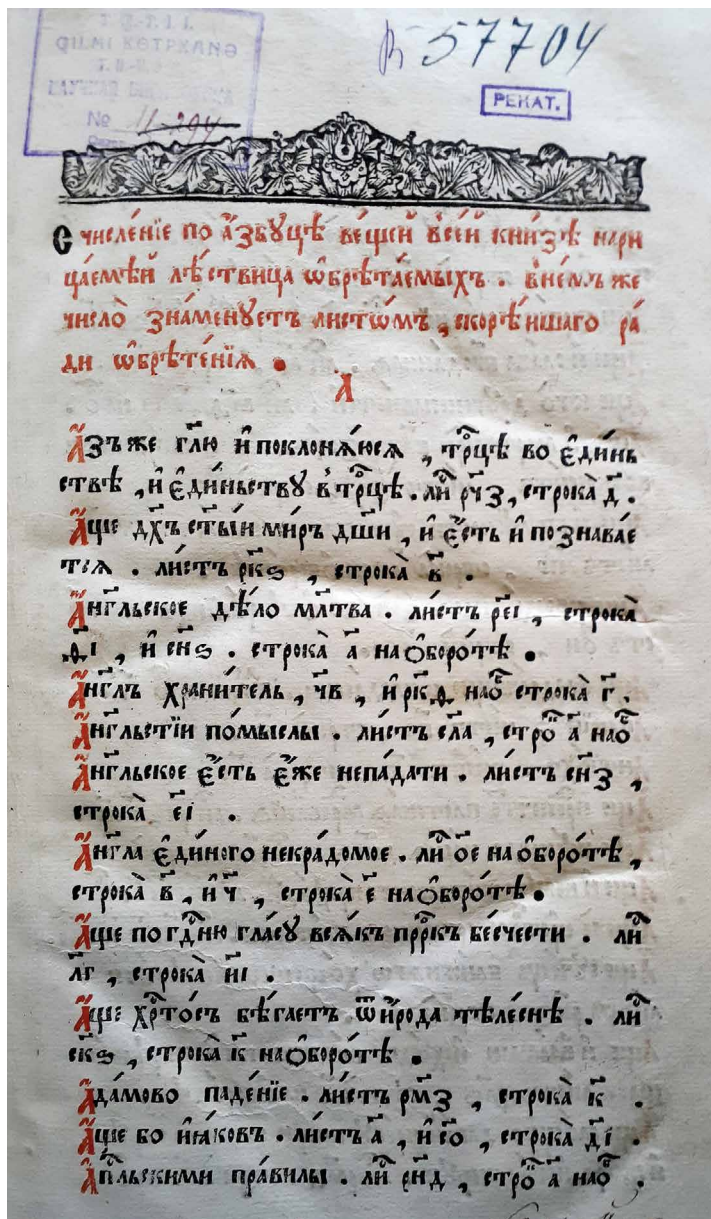 Т. Ф.-Т. І. І.
ФИЛМІ КӨТРХАНӘ
Т. Ф.-Т. І. І.
НАУЧНАЯ БИБЛИОТЕКА
№ 11-294
В 57704
РЕКАТ.
Счисле́нїе по а҆збꙋцѣ веще́й все́й кни́зѣ нари
ца́емѣй лѣ́ствица ѡ҆брѣта́емыхъ . в не́мъ же
число̀ зна́менꙋетъ листѡ́мъ , скорѣ́ишаго ра́
ди ѡ҆брѣте́нїѧ .
А҆
А҆́зъ же гл҃ю и҆ поклонѧ́юсѧ , трⷪ҇цѣ во є҆ди́нь
ствѣ , и҆ є҆ди́ньствꙋ в трⷪ҇цѣ . лиⷭ҇ рч҃з , строка̀ д҃ .
А҆́ще дх҃ъ ст҃ы́й ми́ръ дш҃и , и҆ є҆́сть и҆ познава́е
тсѧ . ли́стъ рк҃ѕ , строка̀ в҃ .
А҆́нг҃льское дѣ́ло мл҃тва . ли́стъ ре҃і , строка̀
ѳ҃і , и҆ сн҃ѕ . строка̀ а҃ на ѻ҆боро́тѣ .
А҆́нг҃лъ храни́тель , ч҃в , и҆ рк҃ѳ наѻ҆ⷠ строка̀ г҃ .
А҆́нг҃льстїи по́мыслы . ли́стъ сл҃а , строⷦ҇ а҃ наѻ҆ⷠ
А҆́нг҃льское є҆́сть є҆́же непа́дати . ли́стъ сн҃з ,
строка̀ е҃і .
А҆́нг҃ла є҆ди́ного некра́домое . лиⷭ҇ ѻ҃е на ѻ҆боро́тѣ ,
строка̀ в҃ , и҆ ч҃ , строка̀ е҃ на ѻ҆боро́тѣ .
А҆́ще по гдⷭ҇ню гла́сꙋ всѧ́къ прⷪ҇ркъ бе́счести . лиⷭ҇
л҃г , строка̀ и҃і .
А҆́ще хрⷭ҇то́съ бѣ́гаетъ ѿ и҆́рода тѣле́снѣ . лиⷭ҇
ск҃ѕ , строка̀ к҃ на ѻ҆боро́тѣ .
А҆да́мово паде́нїе . ли́стъ рм҃з , строка̀ к҃ .
А҆́ще бо и҆ꙗ́ковъ . ли́стъ а҃ , и҆ с҃ѻ , строка̀ д҃і .
А҆пⷭ҇льскими пра́вилы . лиⷭ҇ рн҃д , строⷦ҇ а҃ наѻ҆ⷠ .